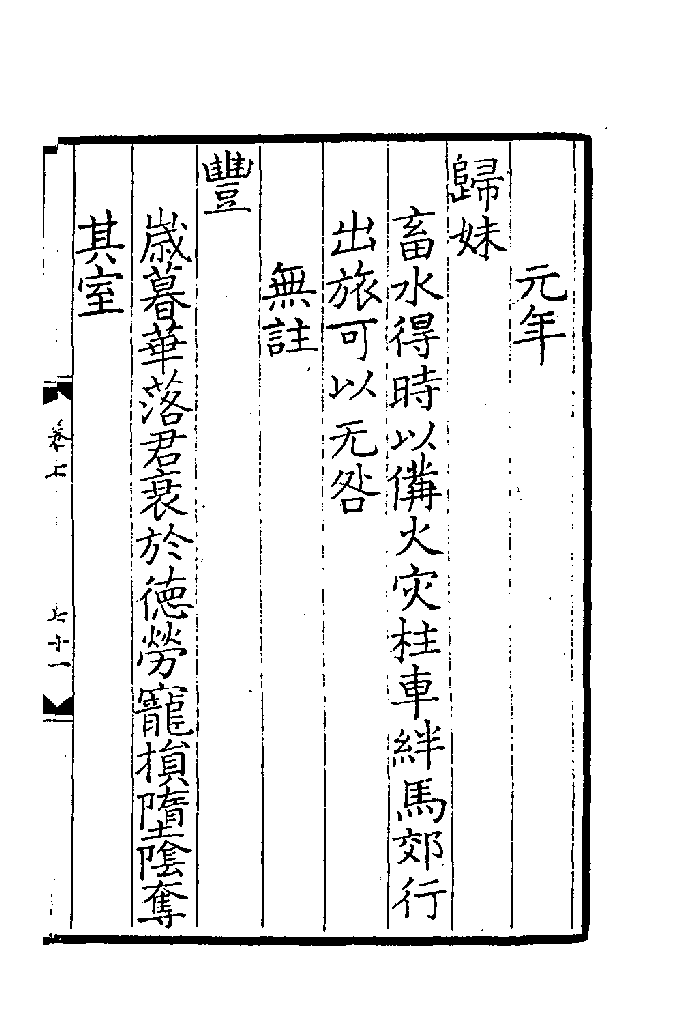 元年
歸妹
畜水得時以備火灾柱車絆馬郊行
出旅可以无咎
無註
豐
歳暮華落君衰於徳勞寵損墮陰奪
其室
卷七
七十一